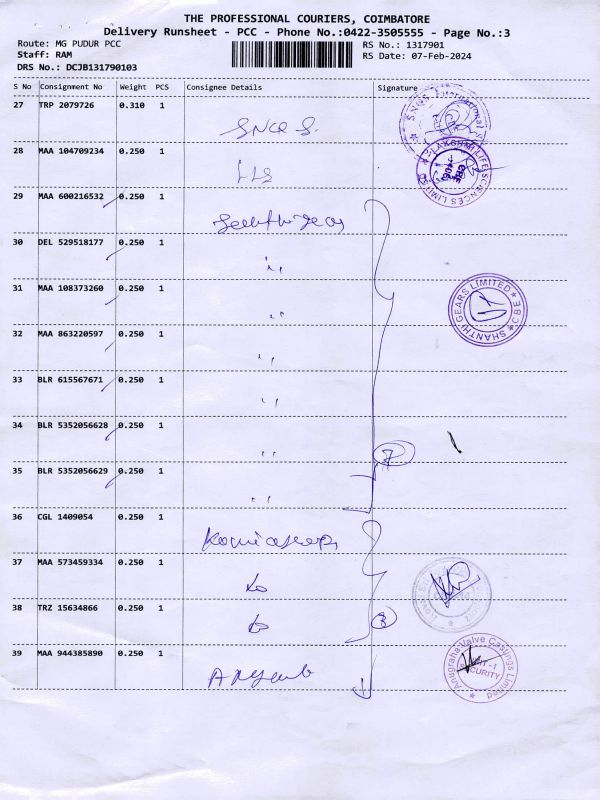 THE PROFESSIONAL COURIERS, COIMBATORE
Delivery Runsheet - PCC - Phone No.:0422-3505555 - Page No.:3
Route: MG PUDUR PCC
RS No.: 1317901
Staff: RAM
RS Date: 07-Feb-2024
DRS No.: DCJB131790103
S No Consignment No Weight PCS Consignee Details Signature
27 TRP 2079726 0.310 1
28 MAA 104709234 0.250 1 LLS
LAKSHMI LIFE SCIENCES LIMITED
29 MAA 600216532 0.250 1
30 DEL 529518177 0.250 1 "
31 MAA 108373260 0.250 1 "
SHANTHI GEARS LIMITED CBE
32 MAA 863220597 0.250 1 "
33 BLR 615567671 0.250 1 "
34 BLR 5352056628 0.250 1 " 7
35 BLR 5352056629 0.250 1 "
36 CGL 1409054 0.250 1
37 MAA 573459334 0.250 1
38 TRZ 15634866 0.250 1 3
39 MAA 944385890 0.250 1
Anugraha Valve Castings Limited
UNIT-1
SECURITY